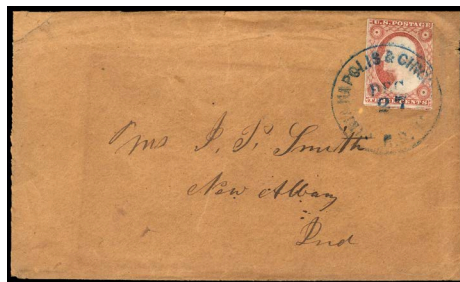 U.S. POSTAGE
THREE CENTS
NAPOLIS & CINC
DEC
27
R.R.
Mr J. P. Smith
New Albany
Ind